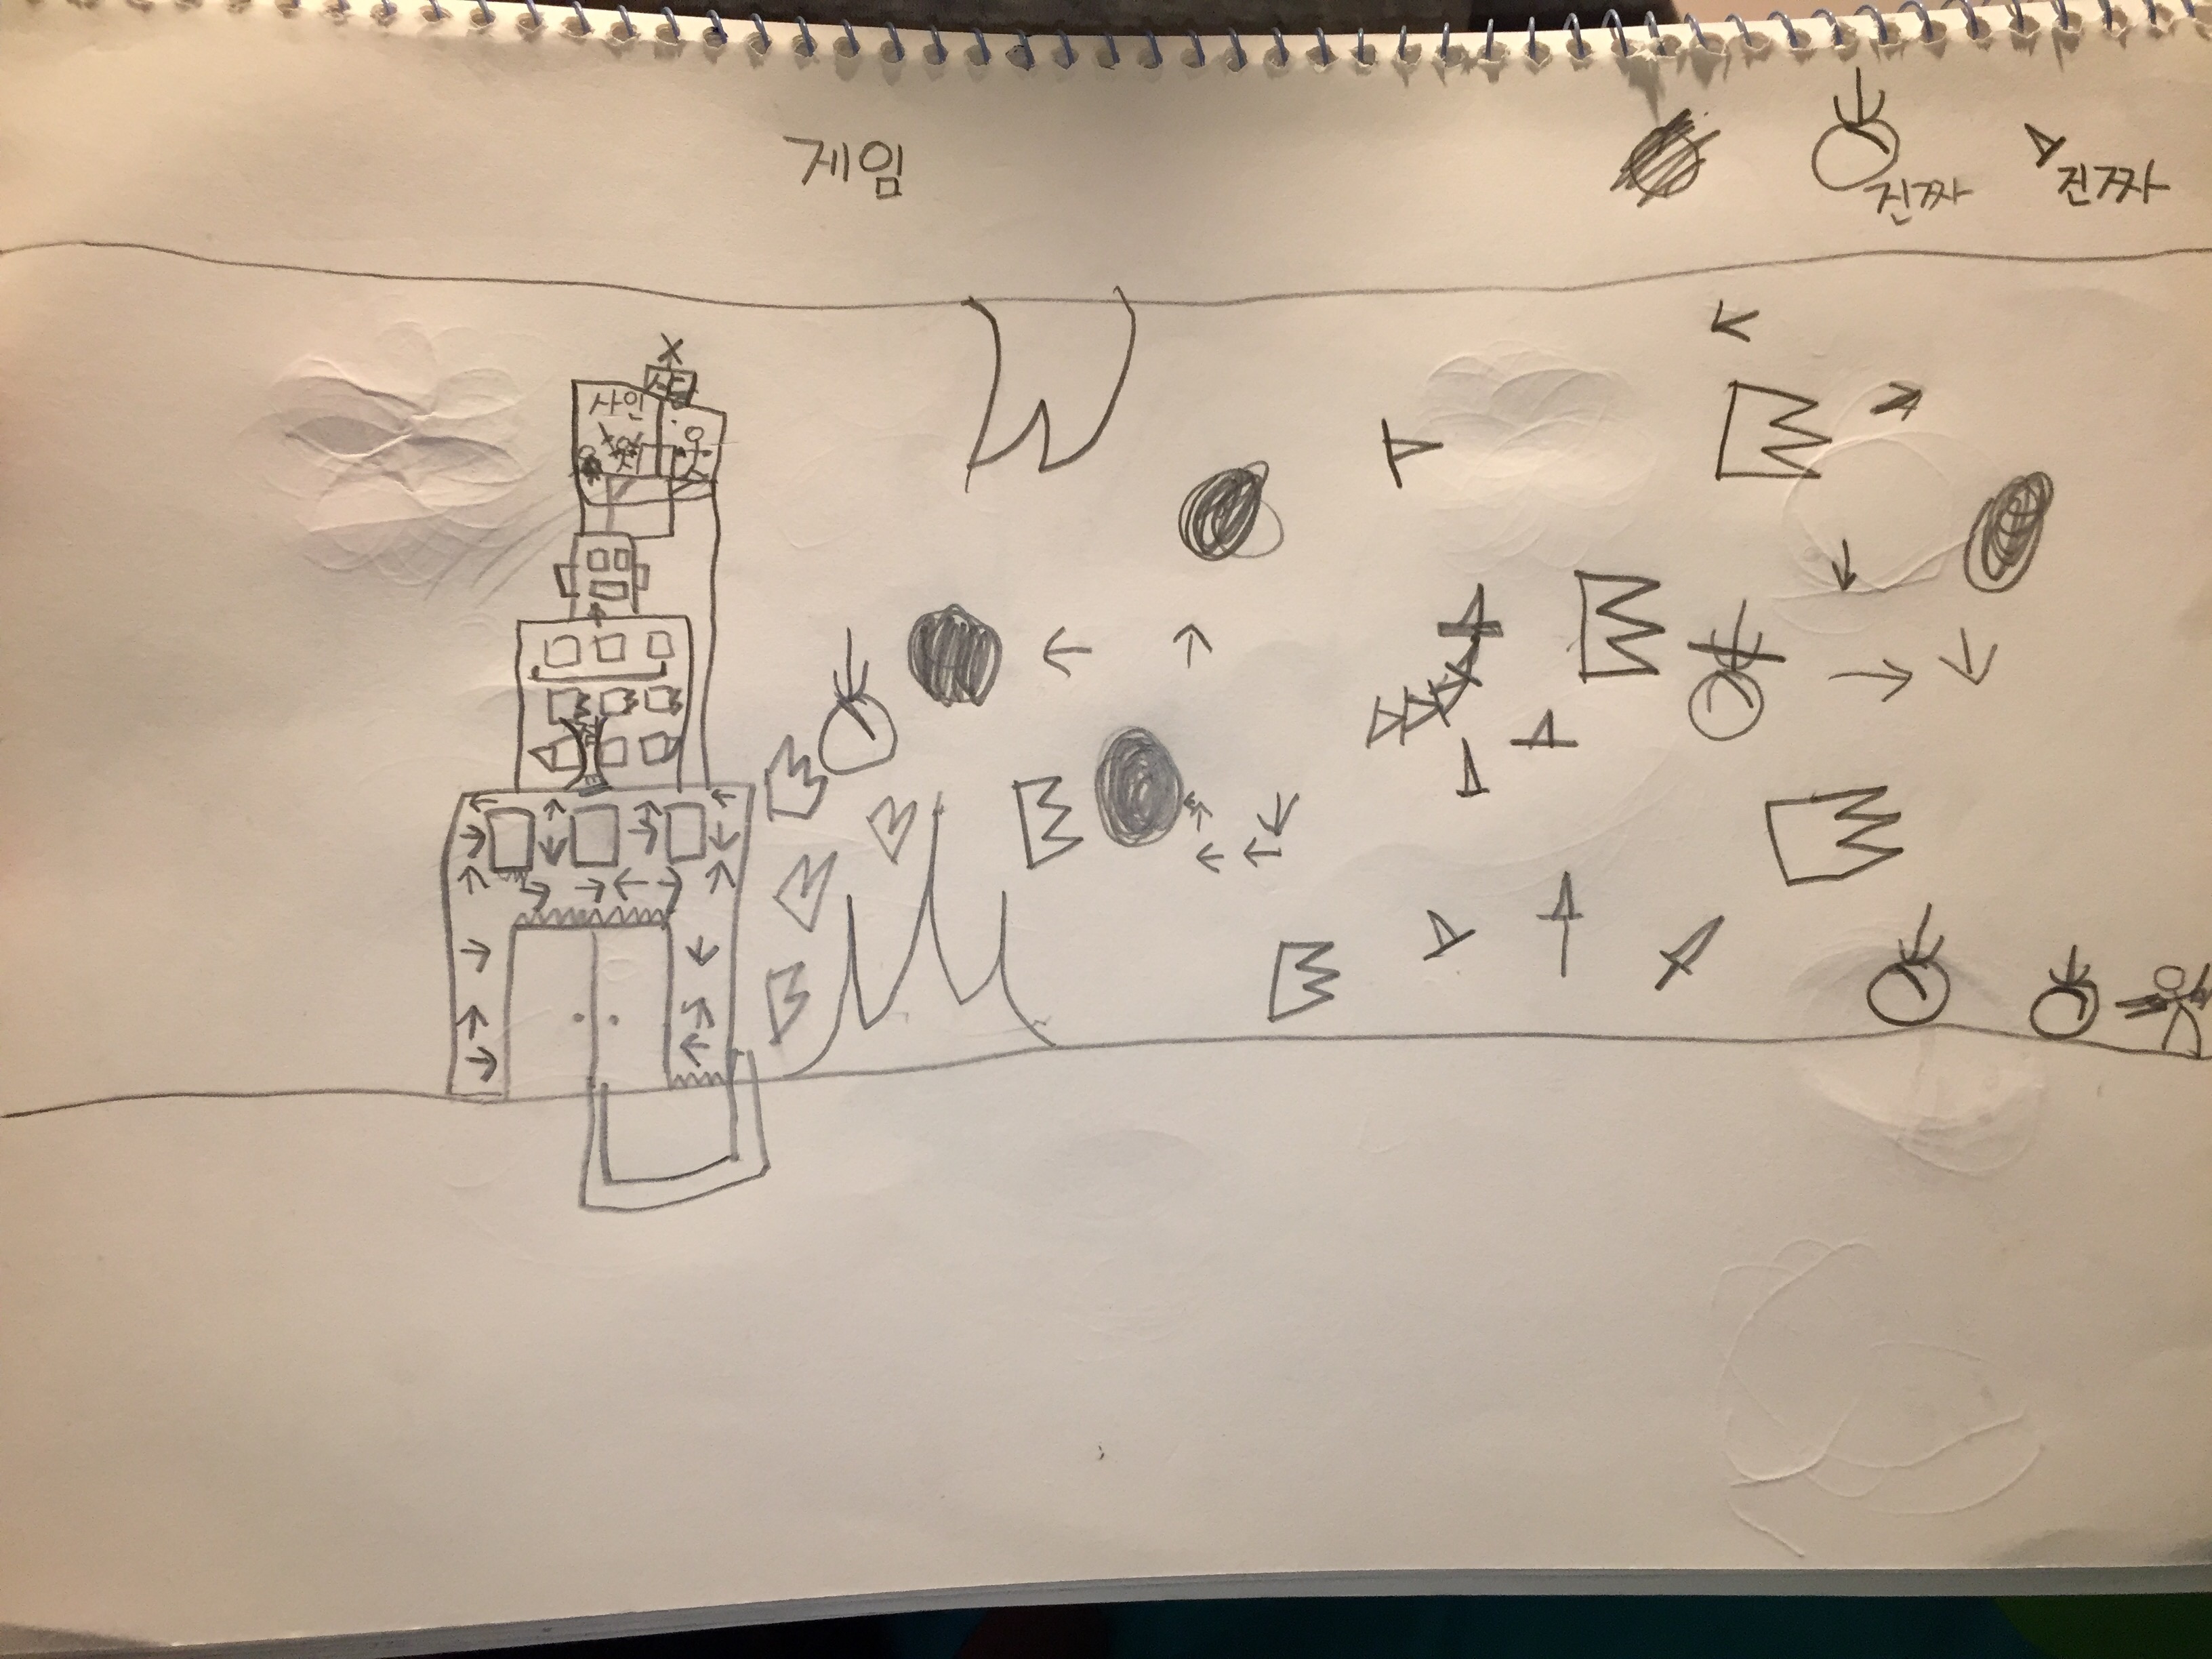 게임
진짜
진짜
사인